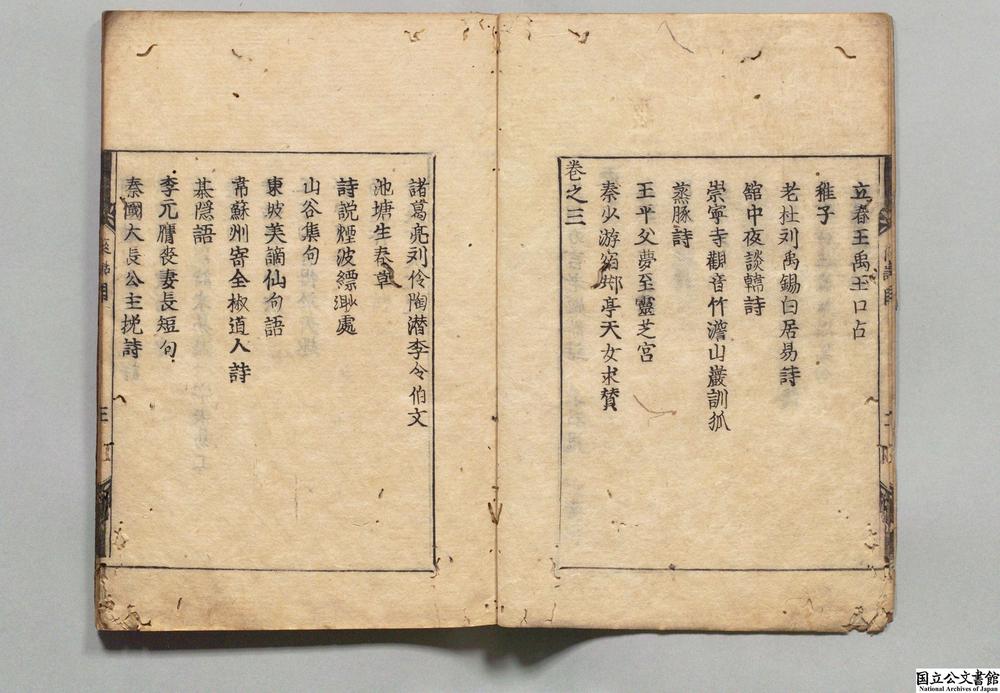 立春王禹玉口占
稚子
老杜刘禹錫白居易詩
舘中夜談韓詩
崇寧寺觀音竹澹山巖訓狐
蒸豚詩
王平父夢至靈芝宮
秦少游宿邺亭天女求贊
卷之三
諸葛亮刘伶陶潜李令伯文
池塘生春草
詩說煙波縹渺處
山谷集句
東坡美謫仙句語
韋蘇州寄全椒道人詩
棊隱語
李元膺喪妻長短句
秦國大長公主挽詩
国立公文書館
National Archives of Japan